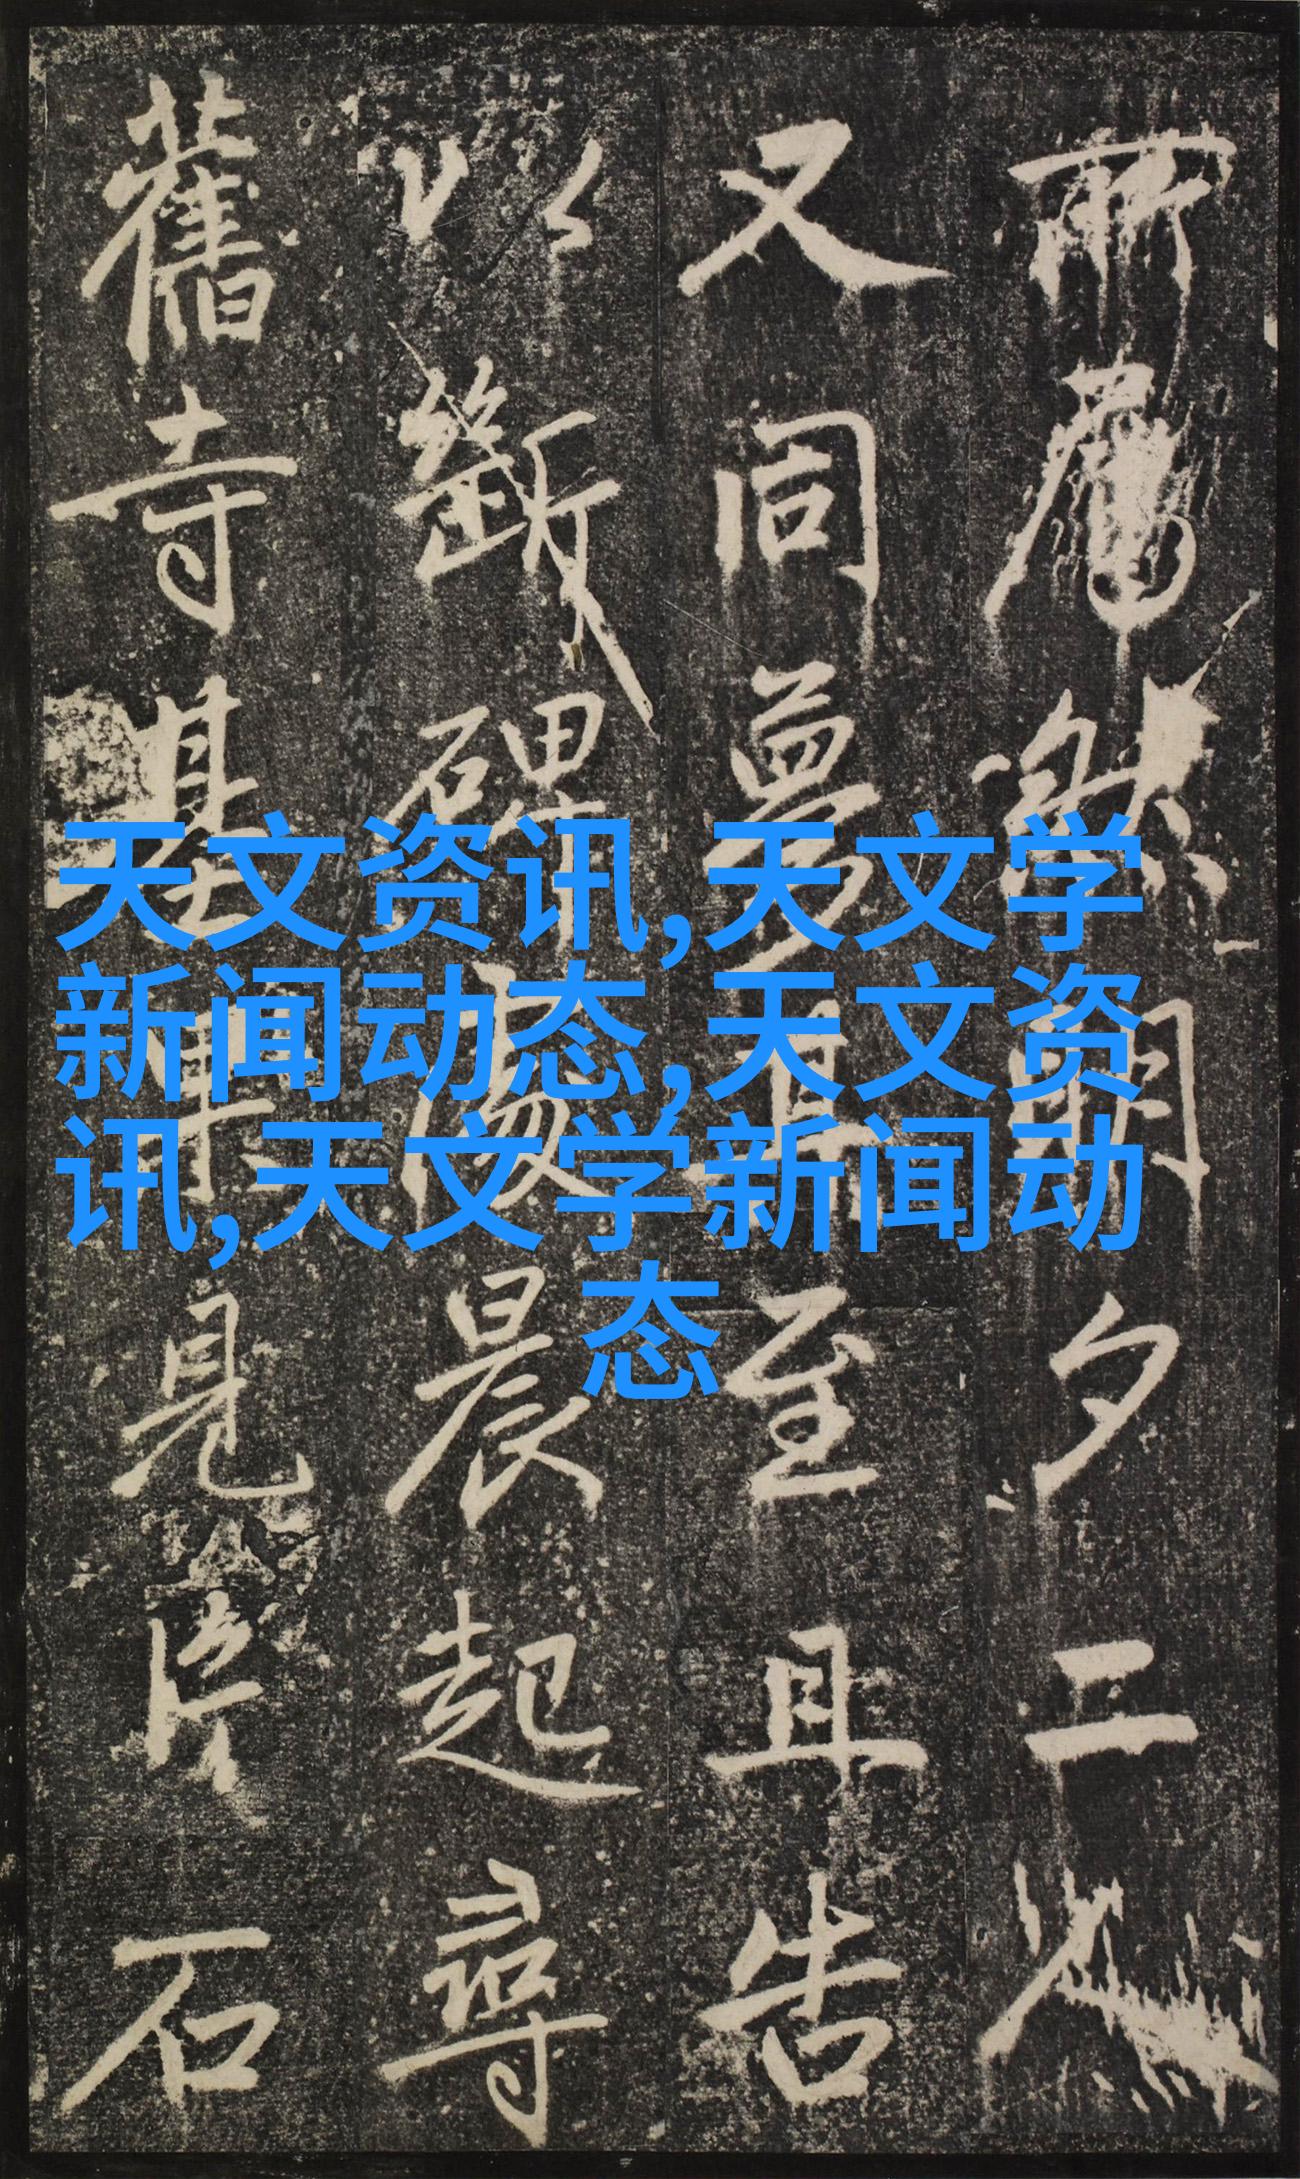 天文资讯,天文学
新闻动态,天文资
讯,天文学新闻动
态
然明夕二
又同夢至且告
以斷碑晨起尋
舊寺基果見片石